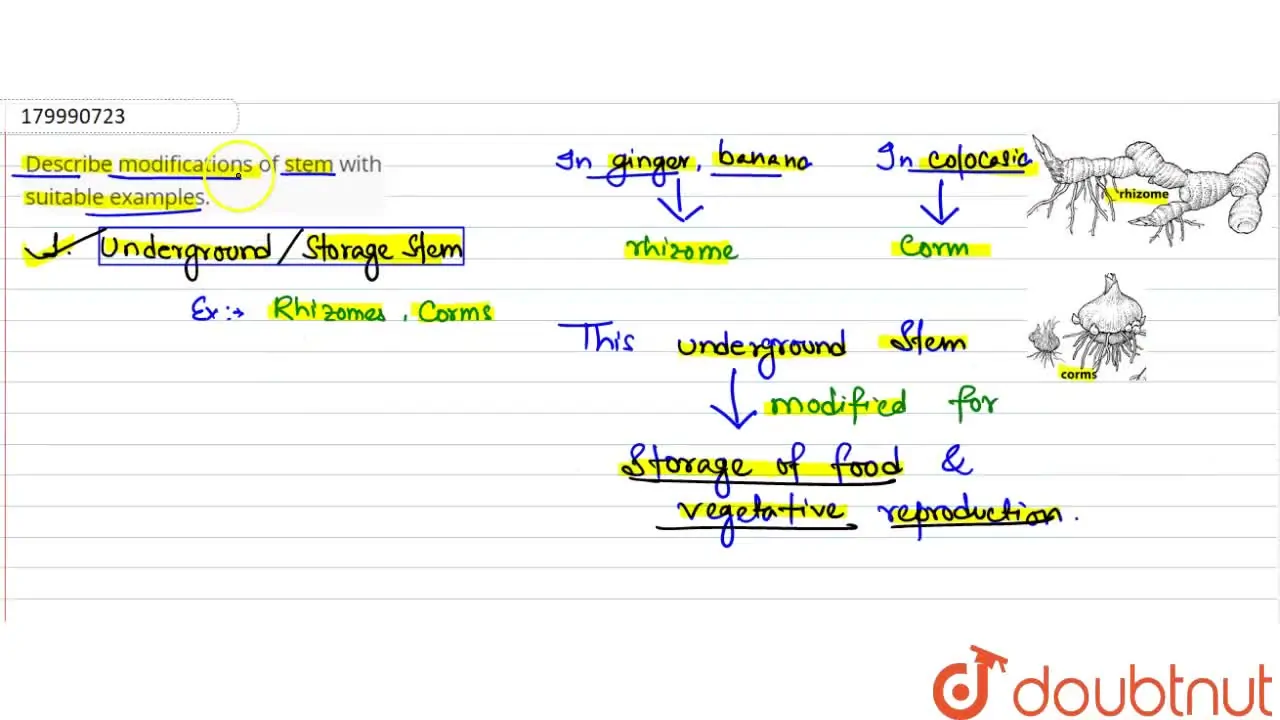 179990723
Describe modifications of stem with
suitable examples.
1. Underground / Storage Stem
Ex :→ Rhizomes, Corms
In ginger, banana
rhizome
In colocasia
Corm
This underground Stem
modified for
Storage of food &
vegetative reproduction.
rhizome
corms
doubtnut